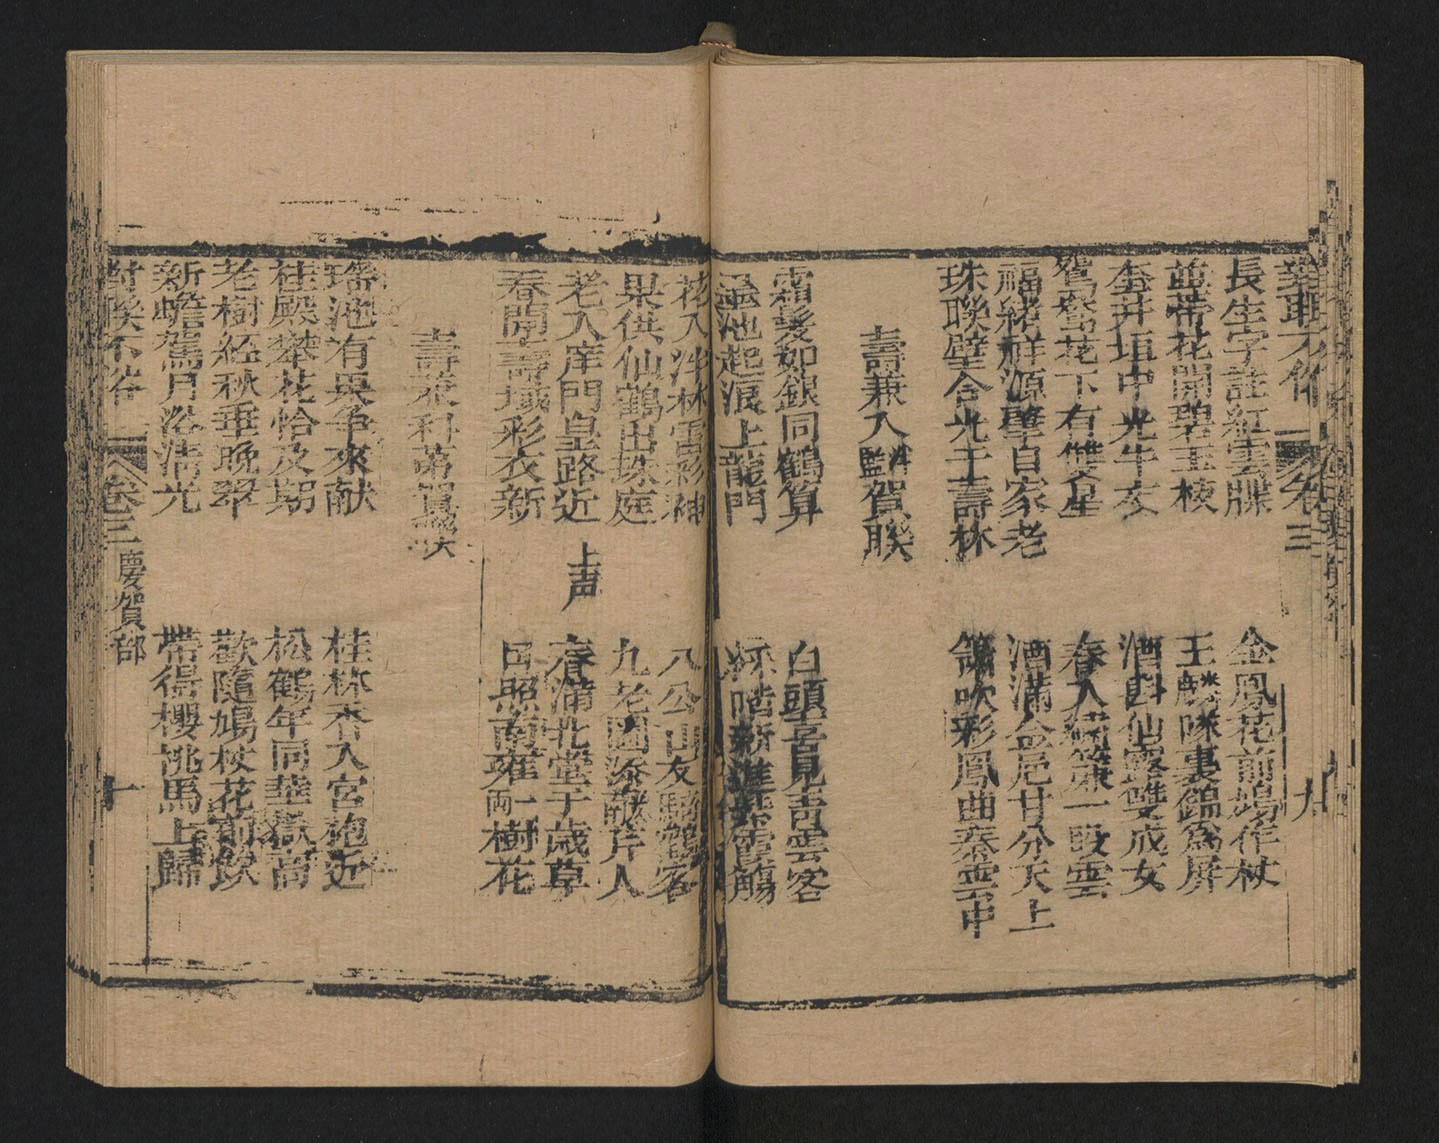 長生字註紅雲牒　金鳳花前鳩作杖
並蒂花開碧玉枝　玉麟嗛裏錦為屏
奎井垣中光牛女　酒斟仙露雙成女
鴛鴦花下有雙星　春入綺筵一段雲
福緒祥源肇自家老　酒滿金卮甘分天上
珠聯壁合光于壽林　簫吹彩鳳曲奏雲中
壽兼入監賀聯
霜髮如銀同鶴算　白頭喜見青雲客
池起浪上龍門　新進紫霞觴
入泮林雲彩紳　八公山友騎鶴客
果供仙鶴出珠庭　九老圖添芹人
老入庠門皇路近　春滿北堂千歲草
上声
春開壽域彩衣新　日照南雍一樹花
兩
壽兼科第賀聯
瑤池有菓爭來献　桂林香入宮袍近
桂殿攀花恰及期　松鶴年同華嶽高
老樹經秋垂晚翠　歡隨鳩杖花前飲
新蟾駕月浴清光　帶得櫻桃馬上歸
對聯不俗　卷三　慶賀部　十